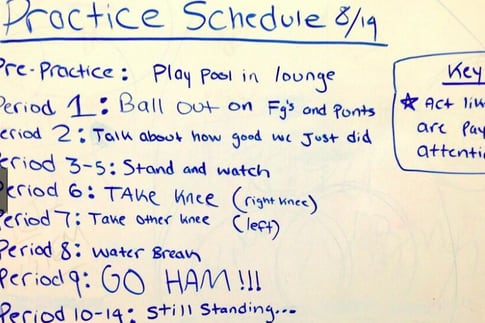 Practice Schedule 8/19
Pre-Practice: Play Pool in lounge
Period 1: Ball out on Fg's and Punts
eriod 2: Talk about how good we Just did
eriod 3-5: Stand and watch
Period 6: TAKE Knee (right knee)
Period 7: Take other knee (left)
Period 8: Water Break
Period 9: GO HAM!!!
Period 10-14: Still Standing...
Key
★ Act lik
are Pay
attenti